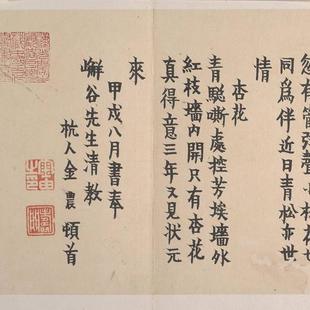 同爲伴近日青松亦世
情
杏花
青驄嘶處控芳埃墻外
紅枝墻內開只有杏花
真得意三年又見狀元
來
甲戌八月書奉
嶰谷先生清教
杭人金農頓首